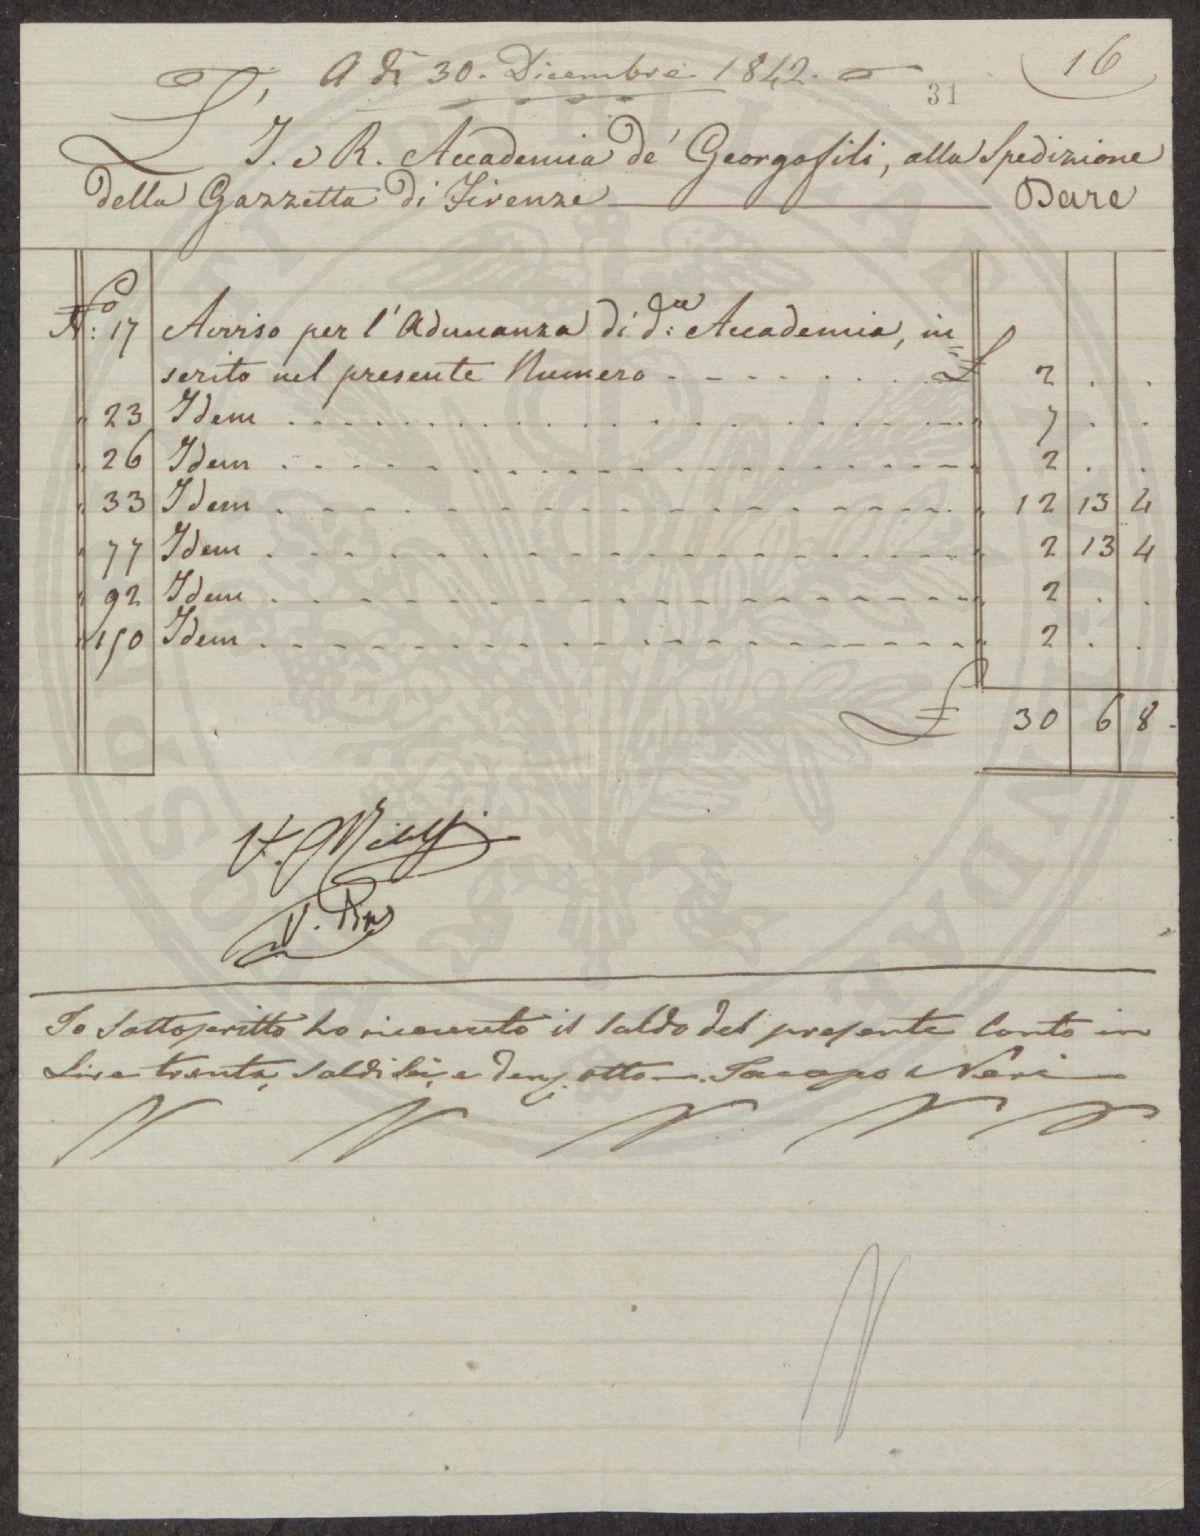 A dì 30. Dicembre 1842.
16
31
L'I. e R. Accademia de' Georgofili, alla Spedizione
della Gazzetta di Firenze Dare
No: 17 Avviso per l'Adunanza di d:ta Accademia, in=
serito nel presente Numero £ 2 . .
" 23 Idem " 7 . .
" 26 Idem " 2 . .
" 33 Idem " 12 13 4
" 77 Idem " 2 13 4
" 92 Idem " 2 . .
" 150 Idem " 2 . .
£ 30 6 8
Io sottoscritto ho ricevuto il saldo del presente Conto in
Lire trenta, soldi sei, e denj. otto Jacopo Neri